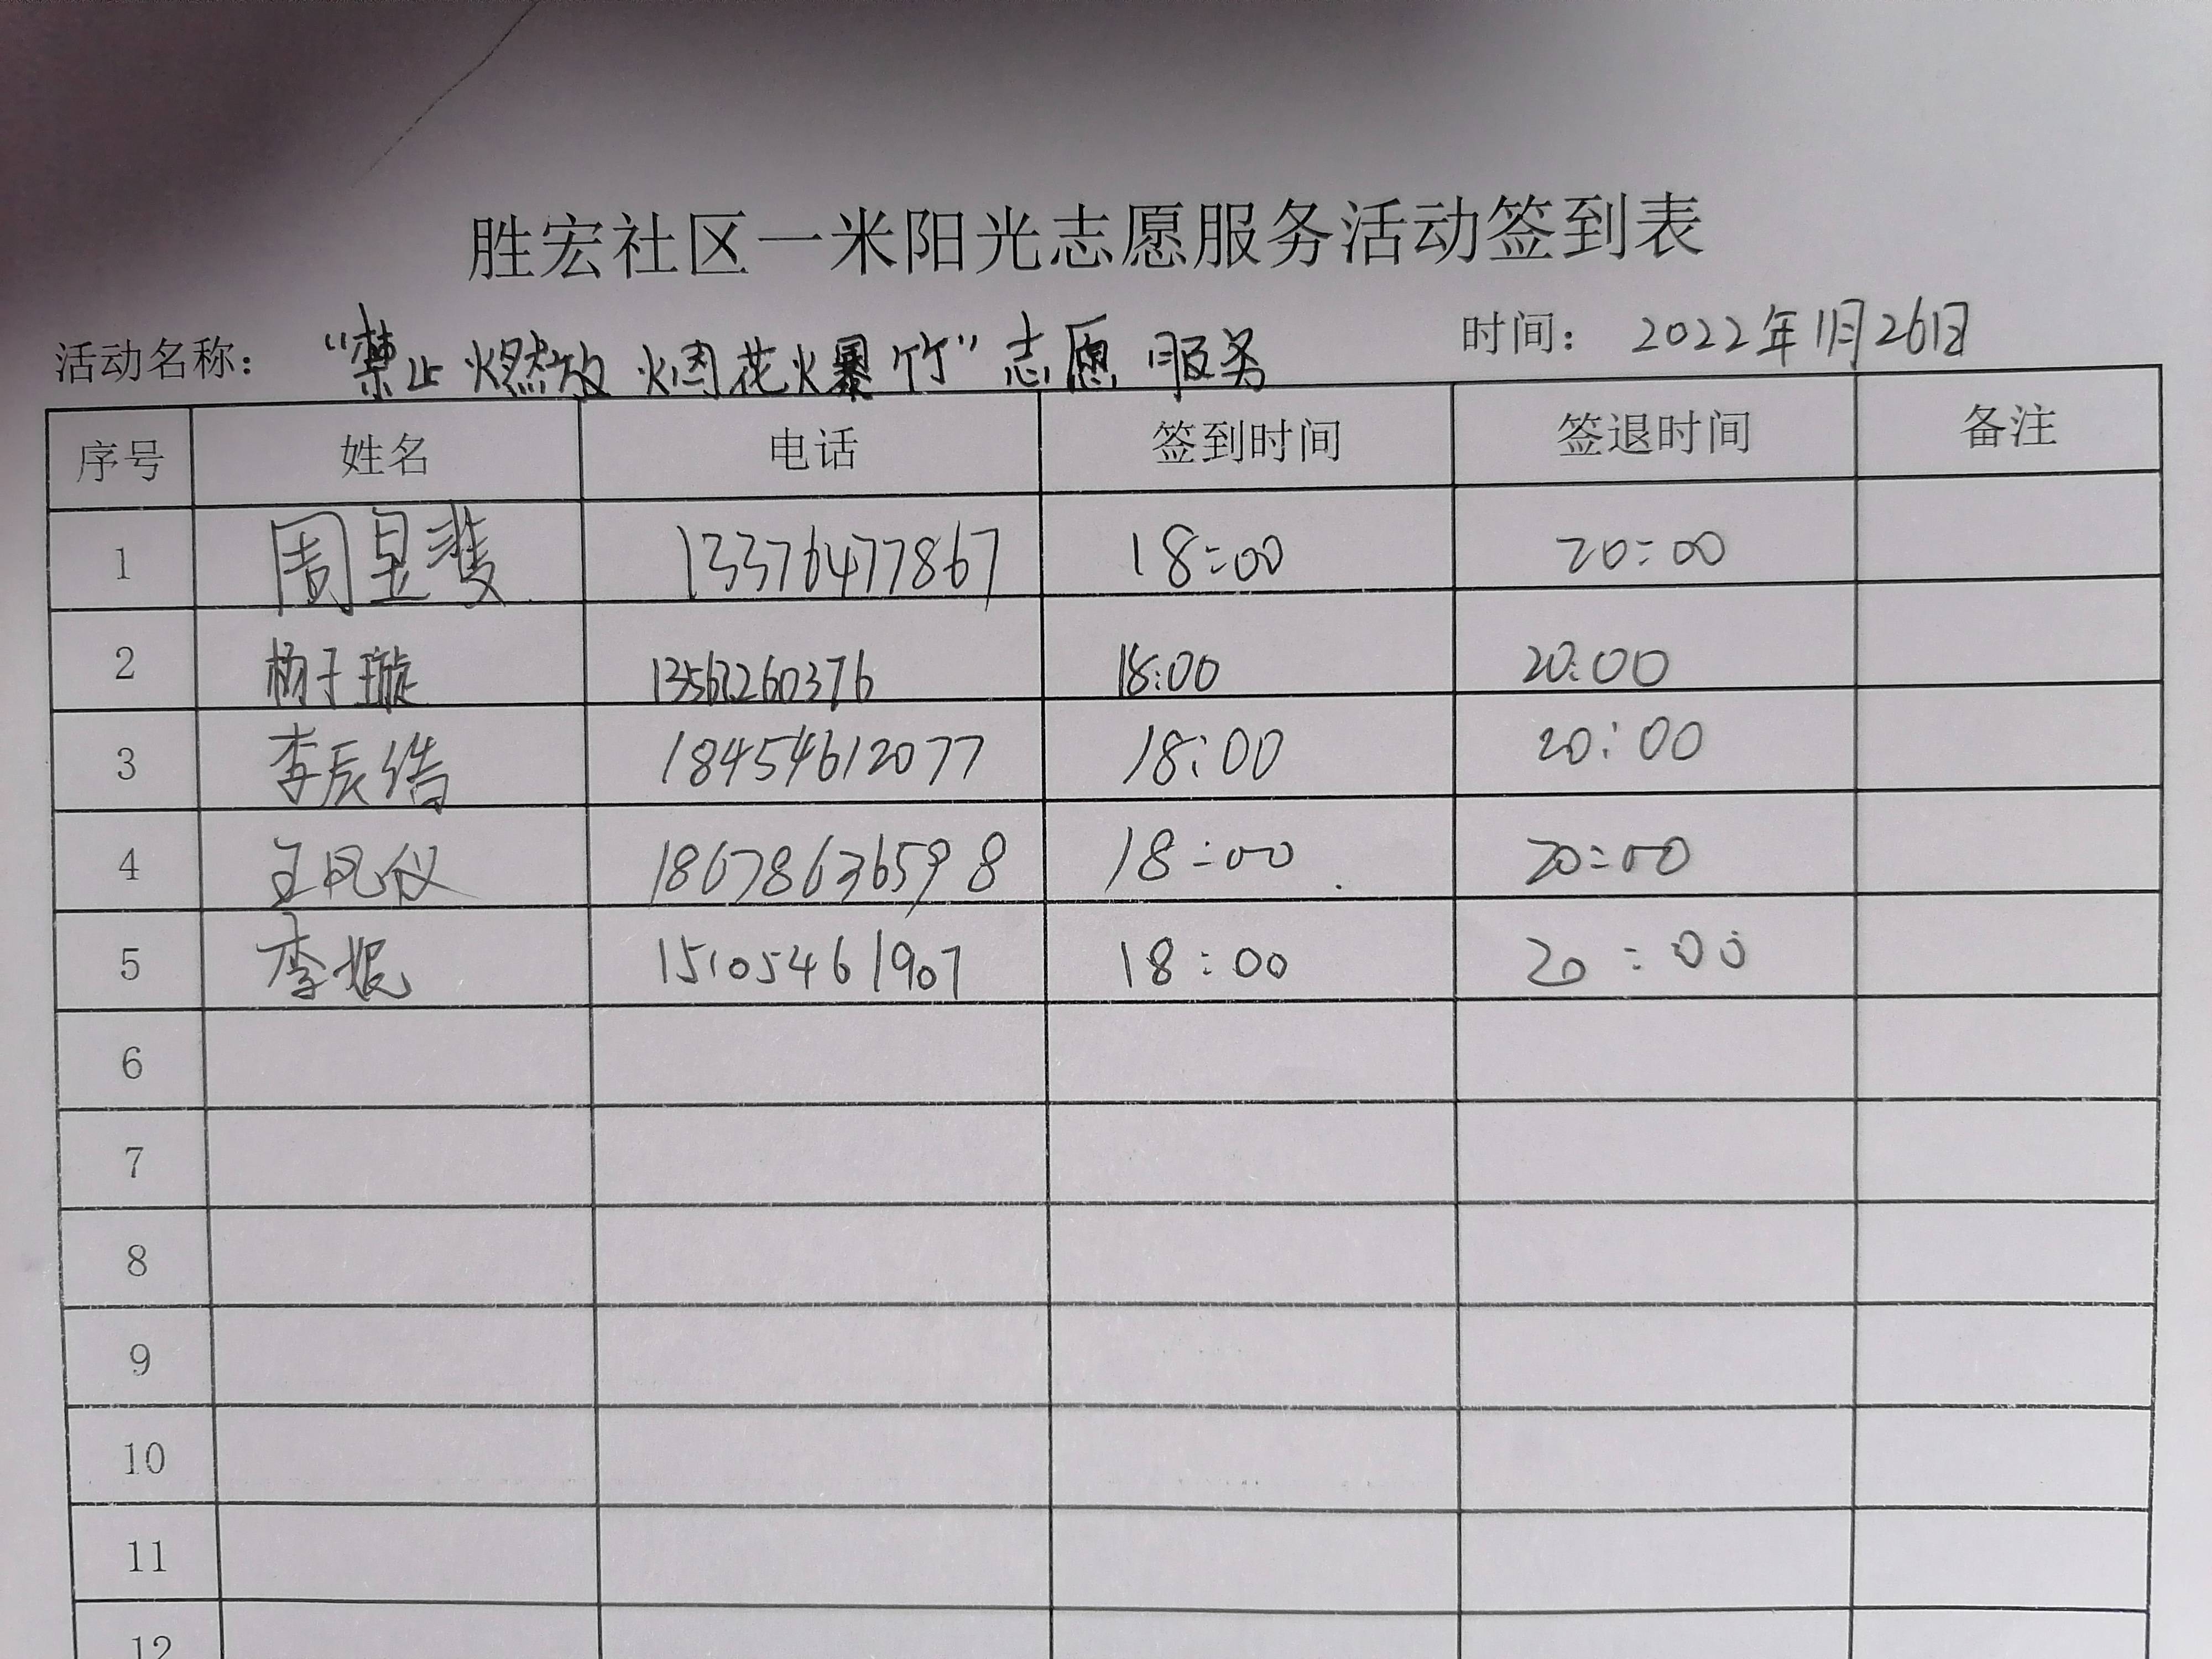 胜宏社区一米阳光志愿服务活动签到表
活动名称： “禁止燃放烟花爆竹”志愿服务 时间： 2022年11月26日
序号 姓名 电话 签到时间 签退时间 备注
1 周昱斐 13376477867 18:00 20:00
2 杨子璇 13561260376 18:00 20:00
3 李辰皓 18454612077 18:00 20:00
4 王 仪 18678636598 18:00 20:00
5 李 15105461907 18:00 20:00
6
7
8
9
10
11
12